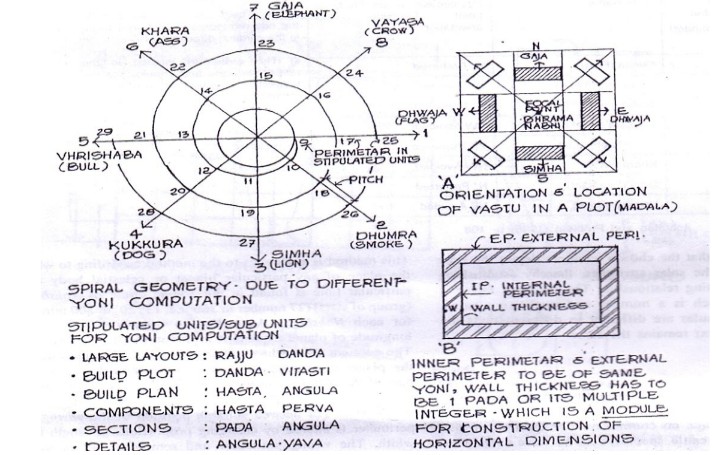 7 GAJA
(ELEPHANT)
KHARA
(ASS)
6
VAYASA
(CROW)
8
23
22
24
15
14
16
DHWAJA
(FLAG)
5 29 21 13
9 17 25 1
VHRISHABA
(BULL)
PERIMETAR IN
STIPULATED UNITS
12 11 10
PITCH
20 19 18
28 27 26
4
KUKKURA
(DOG)
SIMHA
3 (LION)
2
DHUMRA
(SMOKE)
SPIRAL GEOMETRY - DUE TO DIFFERENT
YONI COMPUTATION
STIPULATED UNITS/SUB UNITS
FOR YONI COMPUTATION
• LARGE LAYOUTS : RAJJU DANDA
• BUILD PLOT : DANDA - VITASTI
• BUILD PLAN : HASTA, ANGULA
• COMPONENTS : HASTA PERVA
• SECTIONS : PADA ANGULA
• DETAILS : ANGULA - YAVA
N
GAJA
W
FOCAL
POINT
DHRAMA
NABHI
E
DHWAJA
SIMHA
S
'A'
ORIENTATION & LOCATION
OF VASTU IN A PLOT (MADALA)
EP. EXTERNAL PERI.
I.P. INTERNAL
PERIMETER
W
WALL THICKNESS
'B'
INNER PERIMETAR & EXTERNAL
PERIMETER TO BE OF SAME
YONI, WALL THICKNESS HAS TO
BE 1 PADA OR ITS MULTIPLE
INTEGER - WHICH IS A MODULE
FOR CONSTRUCTION OF
HORIZONTAL DIMENSIONS